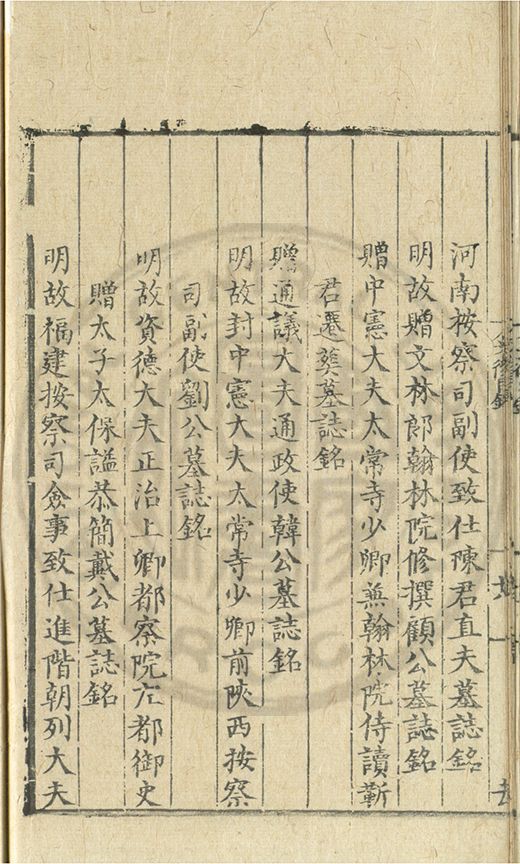 河南按察司副使致仕陳君直夫墓誌銘
明故贈文林郎翰林院修撰顧公墓誌銘
贈中憲大夫太常寺少卿兼翰林院侍讀靳
君遷葬墓誌銘
贈通議大夫通政使韓公墓誌銘
明故封中憲大夫太常寺少卿前陝西按察
司副使劉公墓誌銘
明故資德大夫正治上卿都察院左都御史
贈太子太保謚恭簡戴公墓誌銘
明故福建按察司僉事致仕進階朝列大夫